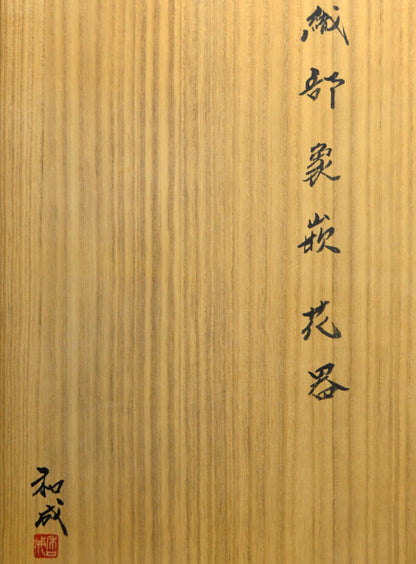 織部象嵌花器
和成